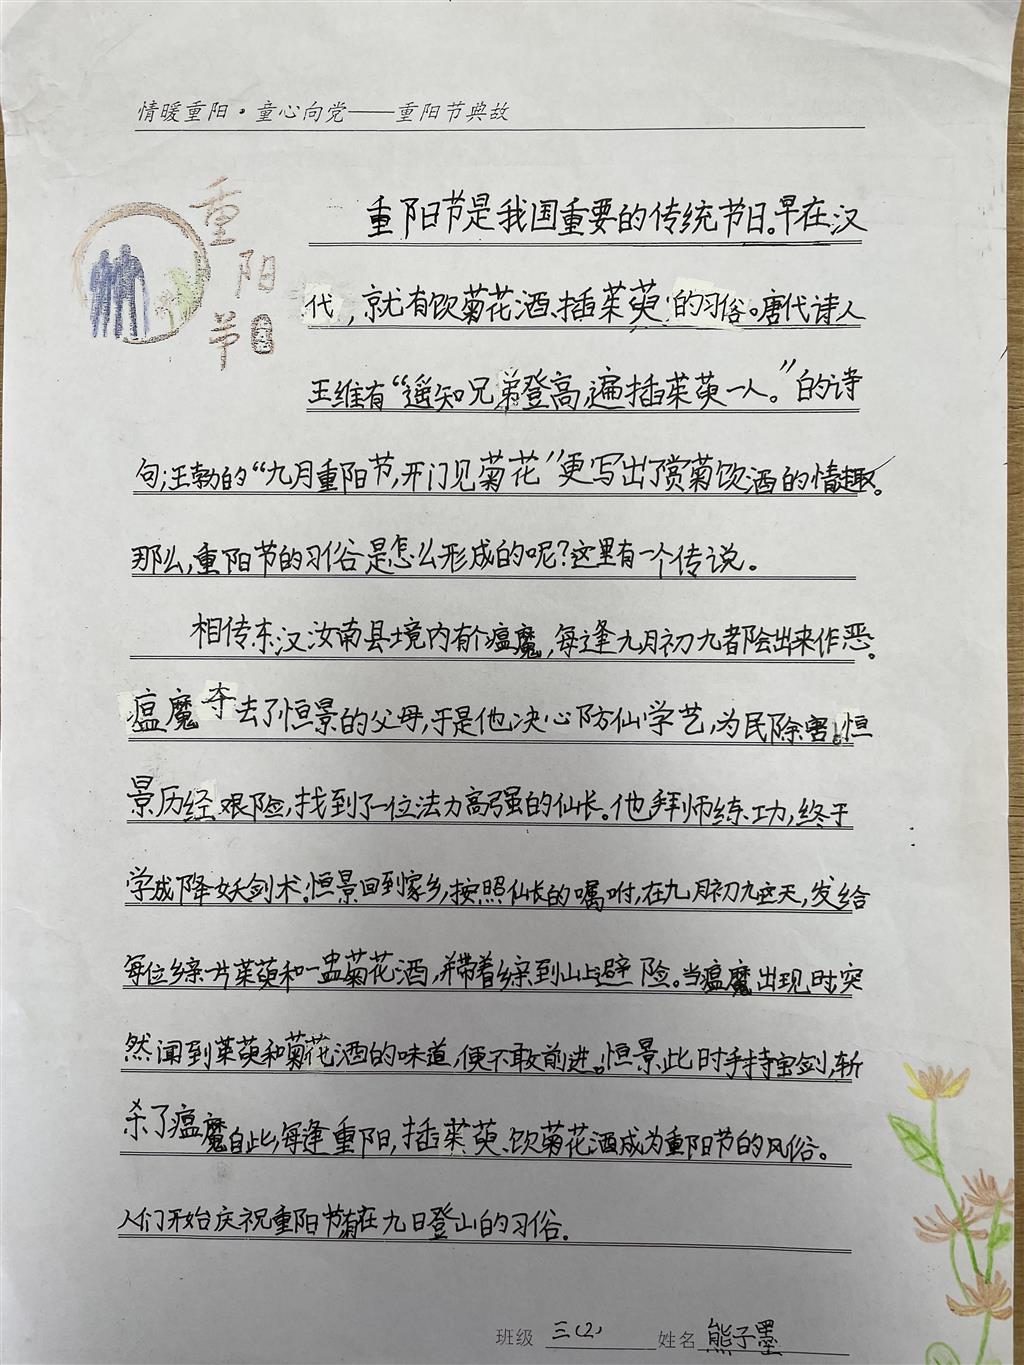 情暖重阳·童心向党——重阳节典故
重阳节
重阳节是我国重要的传统节日。早在汉
代，就有饮菊花酒、插茱萸的习俗。唐代诗人
王维有“遥知兄弟登高，遍插茱萸一人。”的诗
句；王勃的“九月重阳节，开门见菊花”更写出了赏菊饮酒的情趣。
那么，重阳节的习俗是怎么形成的呢？这里有一个传说。
相传东汉汝南县境内有个瘟魔，每逢九月初九都会出来作恶。
瘟魔夺去了恒景的父母，于是他决心防仙学艺，为民除害。恒
景历经艰险，找到了一位法力高强的仙长。他拜师练功，终于
学成降妖剑术。恒景回到家乡，按照仙长的嘱咐，在九月初九这天，发给
每位乡亲一片茱萸和一盅菊花酒，并带着乡亲到山上避险。当瘟魔出现时，突
然闻到茱萸和菊花酒的味道，便不敢前进。恒景此时手持宝剑，斩
杀了瘟魔自此，每逢重阳，插茱萸、饮菊花酒成为重阳节的风俗。
人们开始庆祝重阳节有在九日登山的习俗。
班级 三(2) 姓名 熊子墨